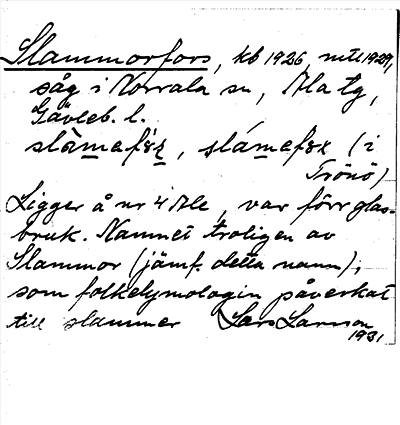 Slammorfors, kb 1926, mtl 1929,
såg i Norrala sn, Ala tg,
Gävleb. l.
slàmefɷʂ, slámefɷʂ (i
Trönö)
Ligger å nr 4 Ale, var förr glas-
bruk. Namnet troligen av
Slammor (jämf. detta namn);
som folketymologin påverkat
till slammer Lars Larsson
1931